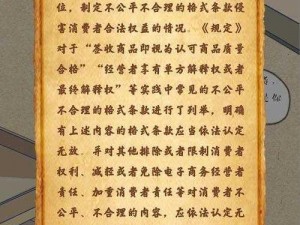 位，制定不公平不合理的格式条款侵
害消费者合法权益的情况，《规定》
对于“签收商品即视为认可商品质量
合格”“经营者享有单方解释权或者
最终解释权”等实践中常见的不公平
不合理的格式条款进行了列举，明确
有上述内容的格式条款应当依法认定
无效，并对其他排除或者限制消费者
权利、减轻或者免除电子商务经营者
责任、加重消费者责任等对消费者不
公平、不合理的内容，应依法认定无